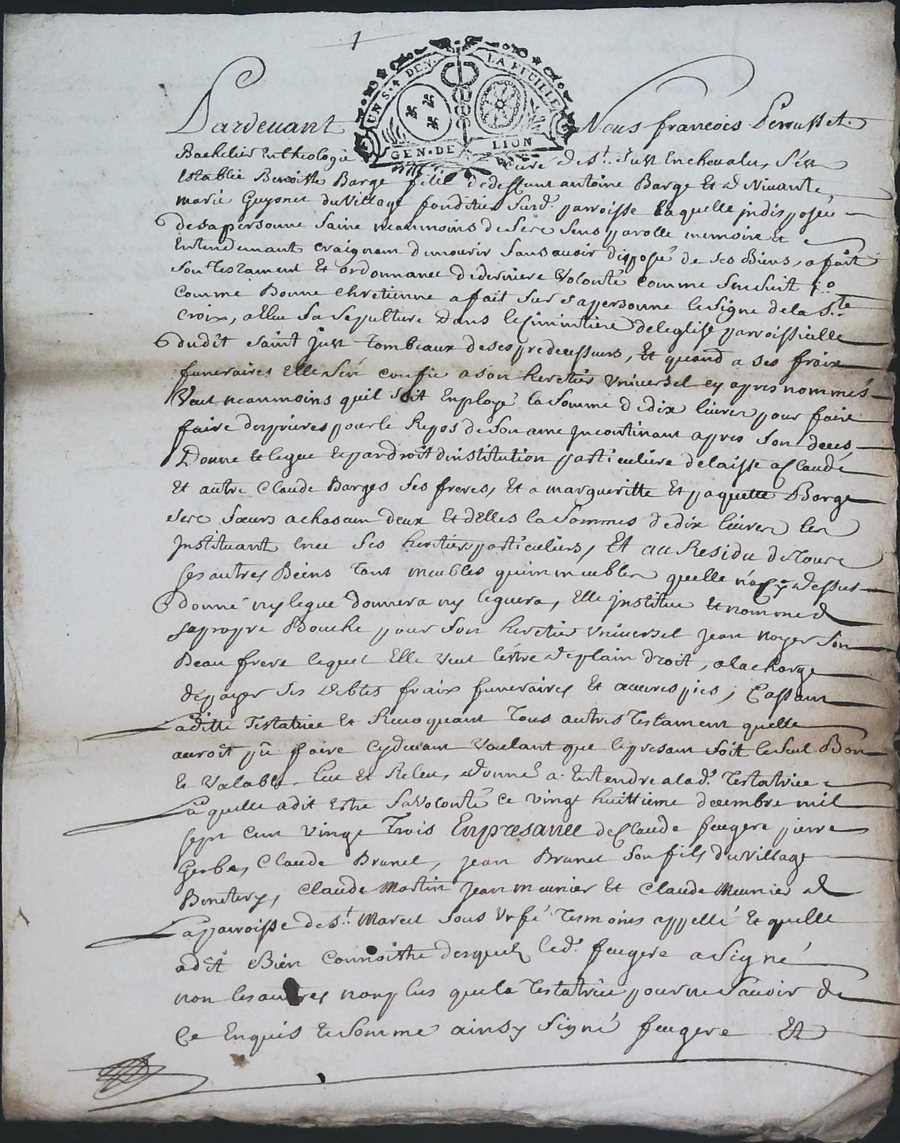 1
UN S. 4 DEN. LA FEUILLE
GEN. DE LION
Pardevant Nous francois Perrusset
Bachelier En theologie Cure de St. Just Enchevalet, S'est
Establie Benoiste Barge fille de deffunt antoine Barge Et de Vivante
marie Guyonet du Village fonditier surd. parroisse laquelle jndisposée
de sa personne saine neanmoins de ses sens parolle memoire et
Entendement craignam de mourir sans avoir disposé de ses Biens, a fait
son testament Et ordonnance de derniere Volonté comme sensuit
comme Bonne chretienne a fait sur sa personne le signe de la Ste
Croix, a Eleu sa sepulture dans le simintiere de leglise parroissialle
dudit saint just tombeaux de ses predecesseurs, Et quand a ses fraix
funeraires Elle s'en confie a son heretier Universel cy apres nommés
Veut neanmoins quil soit Employé la somme de dix livres pour faire
faire des prieres pour le Repos de son ame jncontinant apres son deces
Donne et legue et par droit dinstitution particuliere delaisse a Claude
Et autre Claude Barges ses freres, Et a margueritte Et paquette Barge
ses sœurs a chascun deux Et delles la sommes de dix livres les
jnstituant ses heretiers particuliers, Et au Residu de tous
ses autres Biens tant meubles quimmeubles quelle n'a cy dessus
donné ny legué donnera ny leguera, Elle jnstitue Et nomme de
sa propre Bouche pour son heretier Universel jean noyer son
Beau frere lequel Elle veut lestre de plain droit, a la charge
de payer ses debtes fraix funeraires Et œuvres pies, Cassant
laditte testatrice Et Revoquant tous autres testament quelle
auroit pû faire cy devant Voulant que le presant soit le seul Bon
Et Valable. Leu Et Releu, Donné a Entendre a lad. testatrice
Laquelle a dit Estre sa volonté ce vingt huittieme decembre mil
sept cent vingt trois En presance de Claude feugere
Gerbe, Claude Brunel, jean Brunel son fils du village
Claude Martin jean meunier Et Claude Meunier de
La parroisse de St. Marcel sous Urfé tesmoins appellé Et quelle
a dit Bien connoithe desquel led. feugere a signé
non les autres non plus que la testatrice pour ne savoir de
Ce Enquis Et somme ainsy signé feugere Et